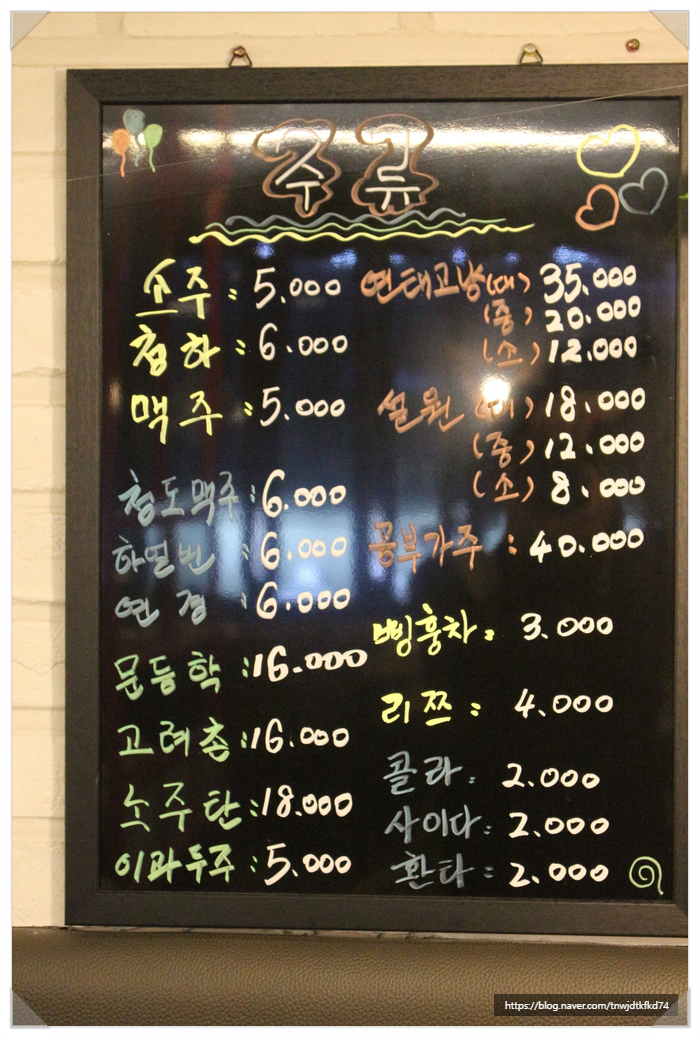 주류
소주 : 5.000
첨하 : 6.000
맥주 : 5.000
청도맥주 : 6.000
하얼빈 : 6.000
연경 : 6.000
문등학 : 16.000
고려촌 : 16.000
노주탄 : 18.000
이과두주 : 5.000
연태고냥(대) 35.000
(중) 20.000
(소) 12.000
설원 (대) 18.000
(중) 12.000
(소) 8.000
공부가주 : 40.000
삥홍차 : 3.000
리쯔 : 4.000
콜라 : 2.000
사이다 : 2.000
환타 : 2.000
https://blog.naver.com/tnwjdtkfkd74